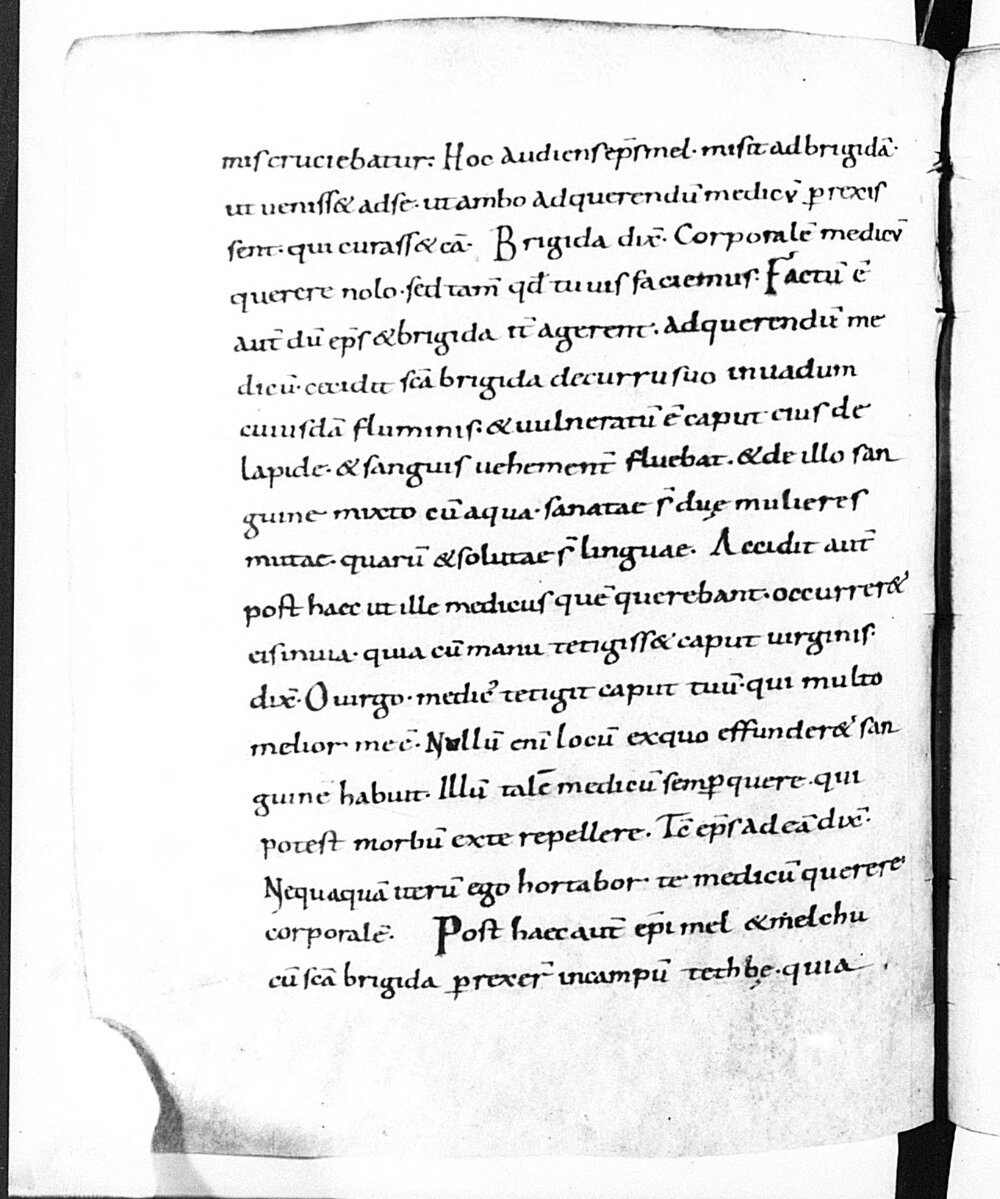 miscruciebatur. Hoc audiens ep̄s mel. misit ad brigidā.
ut uenisset adse. ut ambo adquerendū medicū p̲rexis
sent. qui curasset eā. Brigida dix̄. Corporalē medicū
querere nolo. sed tam̄ qđ tu uis faciemus. Factū ē
aut̄ dū ep̄s & brigida it̄ agerent. adquerendū me
dicū. cecidit sc̄a brigida decurru suo inuadum
cuiusdā fluminis. & uulneratū ē caput eius de
lapide. & sanguis uehement̄ fluebat. & de illo san
guine mixto cū aqua. sanatae s̄ duę mulieres
mutae. quarū & solutae s̄ linguae. Accidit aut̄
post haec ut ille medicus quē querebant. occurrer&
eis inuia. quia cū manu tetigiss& caput uirginis.
dix̄. O uirgo. medicꝰ tetigit caput tuū. qui multo
melior me ē. Nullū enī locū exquo effunder& san
guinē habuit. Illū talē medicū semp̲ quere. qui
potest morbū exte repellere. Tc̄ ep̄s ad eā dix̄.
Nequaquā iterū ego hortabor te medicū querere
corporalē. Post haec aut̄ ep̄i mel & melchu
cū sc̄a brigida p̲rexer̄ incampū tethbę. quia